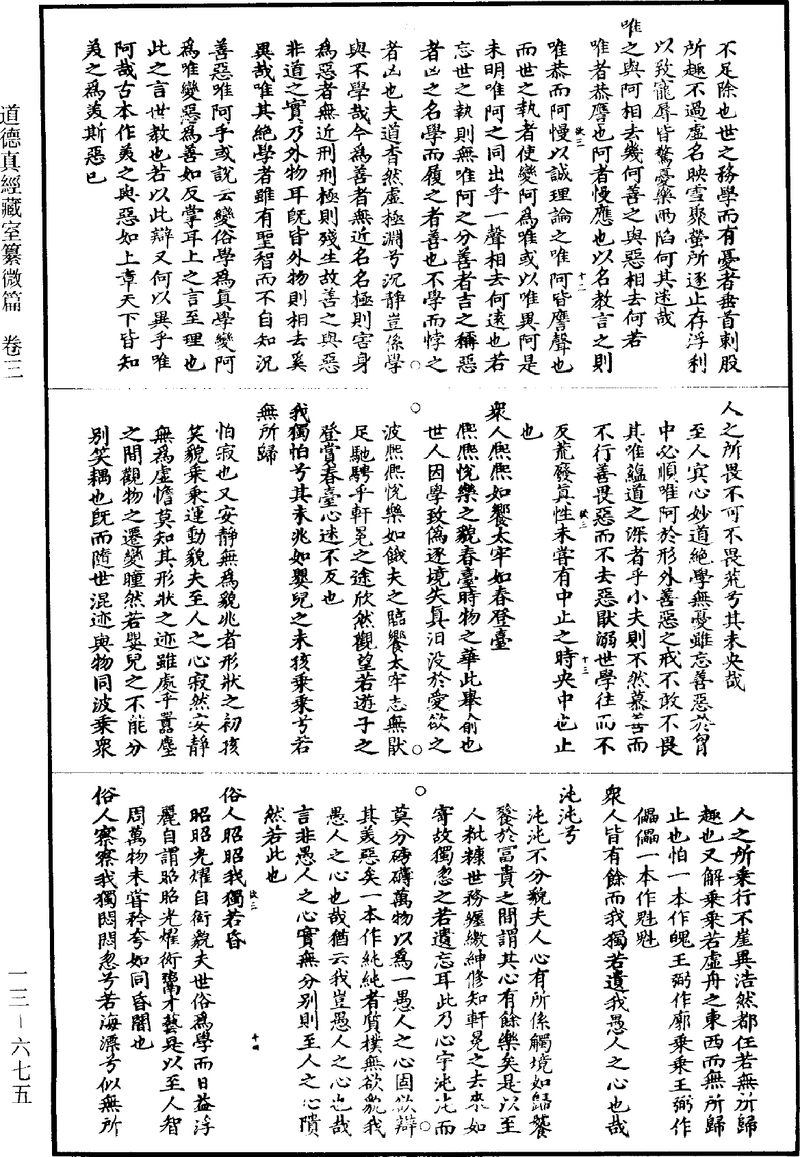 道德真經藏室纂微篇　卷三
不足除也世之務學而有憂者垂首刺股
所趣不過虛名映雪聚螢所逐止存浮利
以致寵辱皆驚憂藥兩陷何其迷哉
唯之與阿相去幾何善之與惡相去何若
唯者恭譍也阿者慢應也以名教言之則
欲三　十二
唯恭而阿慢以誠理論之唯阿皆譍聲也
而世之執者使變阿為唯或以唯異阿是
未明唯阿之同出乎一聲相去何遠也若
忘世之執則無唯阿之分善者吉之稱惡
者凶之名學而履之者善也不學而悖之
者凶也夫道杳然虛極淵兮沉靜豈係學
與不學哉今為善者無近名名極則害身
為惡者無近刑刑極則殘生故善之與惡
非道之實乃外物耳既皆外物則相去奚
異哉唯其絕學者雖有聖智而不自知況
善惡唯阿乎或說云變俗學為真學變阿
為唯變惡為善如反掌耳上之言至理也
此之言世教也若以此辯又何以異乎唯
阿哉古本作美之與惡如上章天下皆知
美之為美斯惡已
人之所畏不可不畏荒兮其未央哉
至人冥心妙道絕學無憂雖忘善惡於胷
中必順唯阿於形外善惡之戒不敢不畏
其唯蘊道之深者乎小夫則不然慕善而
不行善畏惡而不去惡猒溺世學往而不
欲三　十三
反荒發真性未甞有中止之時央中也止
也
眾人熙熙如饗太牢如春登臺
熙熙悅樂之貌春臺時物之華此舉俞也
世人因學致偽逐境失真汨没於愛欲之
波熙熙悅樂如餓夫之臨饗太牢志無猒
足馳騁乎軒冕之途欣然觀望若遊子之
登賞春臺心迷不反也
我獨怕兮其未兆如嬰兒之未孩乘乘兮若
無所歸
怕寂也又安靜無為貌兆者形狀之初孩
笑貌乘乘運動貌夫至人之心寂然安靜
無為虛憺莫知其形狀之迹雖處乎囂塵
之間觀物之遷變瞳然若嬰兒之不能分
別笑耦也既而隨世混迹與物同波乘眾
人之所乘行不崖異浩然都任若無所歸
趣也又解乘乘若虛舟之東西而無所歸
止也怕一本作魄王弼作廓乘乘王弼作
儡儡一本作魁魁
眾人皆有餘而我獨若遺我愚人之心也哉
沌沌兮
沌沌不分貌夫人心有所係觸境如歸餮
餮於富貴之間謂其心有餘樂矣是以至
人粃糠世務纏繳紳修知軒冕之去來如
寄故獨忽之若遺忘耳此乃心宇沌沌而
莫分磅礴萬物以為一愚人之心固欲辯
其美惡矣一本作純純者質樸無欲貌我
愚人之心也哉猶云我豈愚人之心也哉
言非愚人之心實無分別則至人之心隤
然若此也
俗人昭昭我獨若昏
欲三　十四
昭昭光燿自衒貌夫世俗為學而日益浮
麗自謂昭昭光燿衒鬻才藝是以至人智
周萬物未甞矜夸如同昏闇也
俗人察察我獨悶悶忽兮若海漂兮似無所
一三－六七五